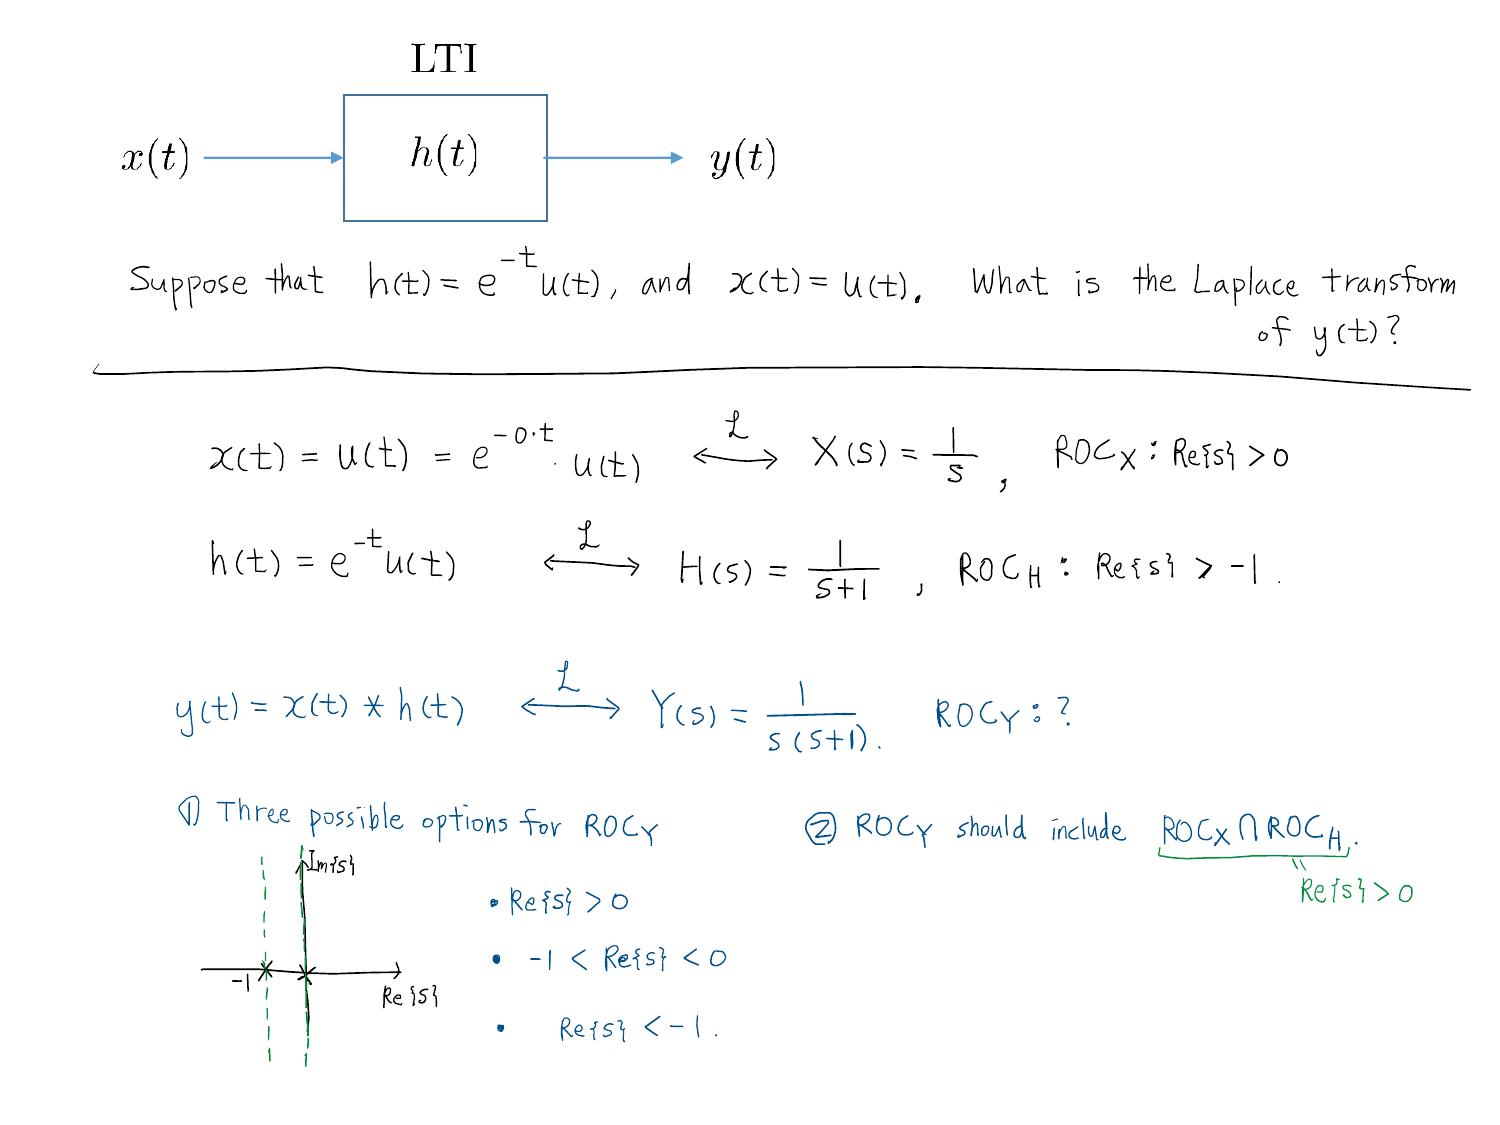 LTI
x(t) h(t) y(t)
Suppose that h(t) = e^{-t} u(t), and x(t) = u(t). What is the Laplace transform
of y(t)?
x(t) = u(t) = e^{-0·t} · u(t) ⟷^ℒ X(s) = 1/s , ROC_X : Re{s} > 0
h(t) = e^{-t} u(t) ⟷^ℒ H(s) = 1/(s+1) , ROC_H : Re{s} > -1.
y(t) = x(t) * h(t) ⟷^ℒ Y(s) = 1/(s(s+1)). ROC_Y : ?
① Three possible options for ROC_Y
Im{s}
-1
Re{s}
• Re{s} > 0
• -1 < Re{s} < 0
• Re{s} < -1.
② ROC_Y should include ROC_X ∩ ROC_H.
=
Re{s} > 0